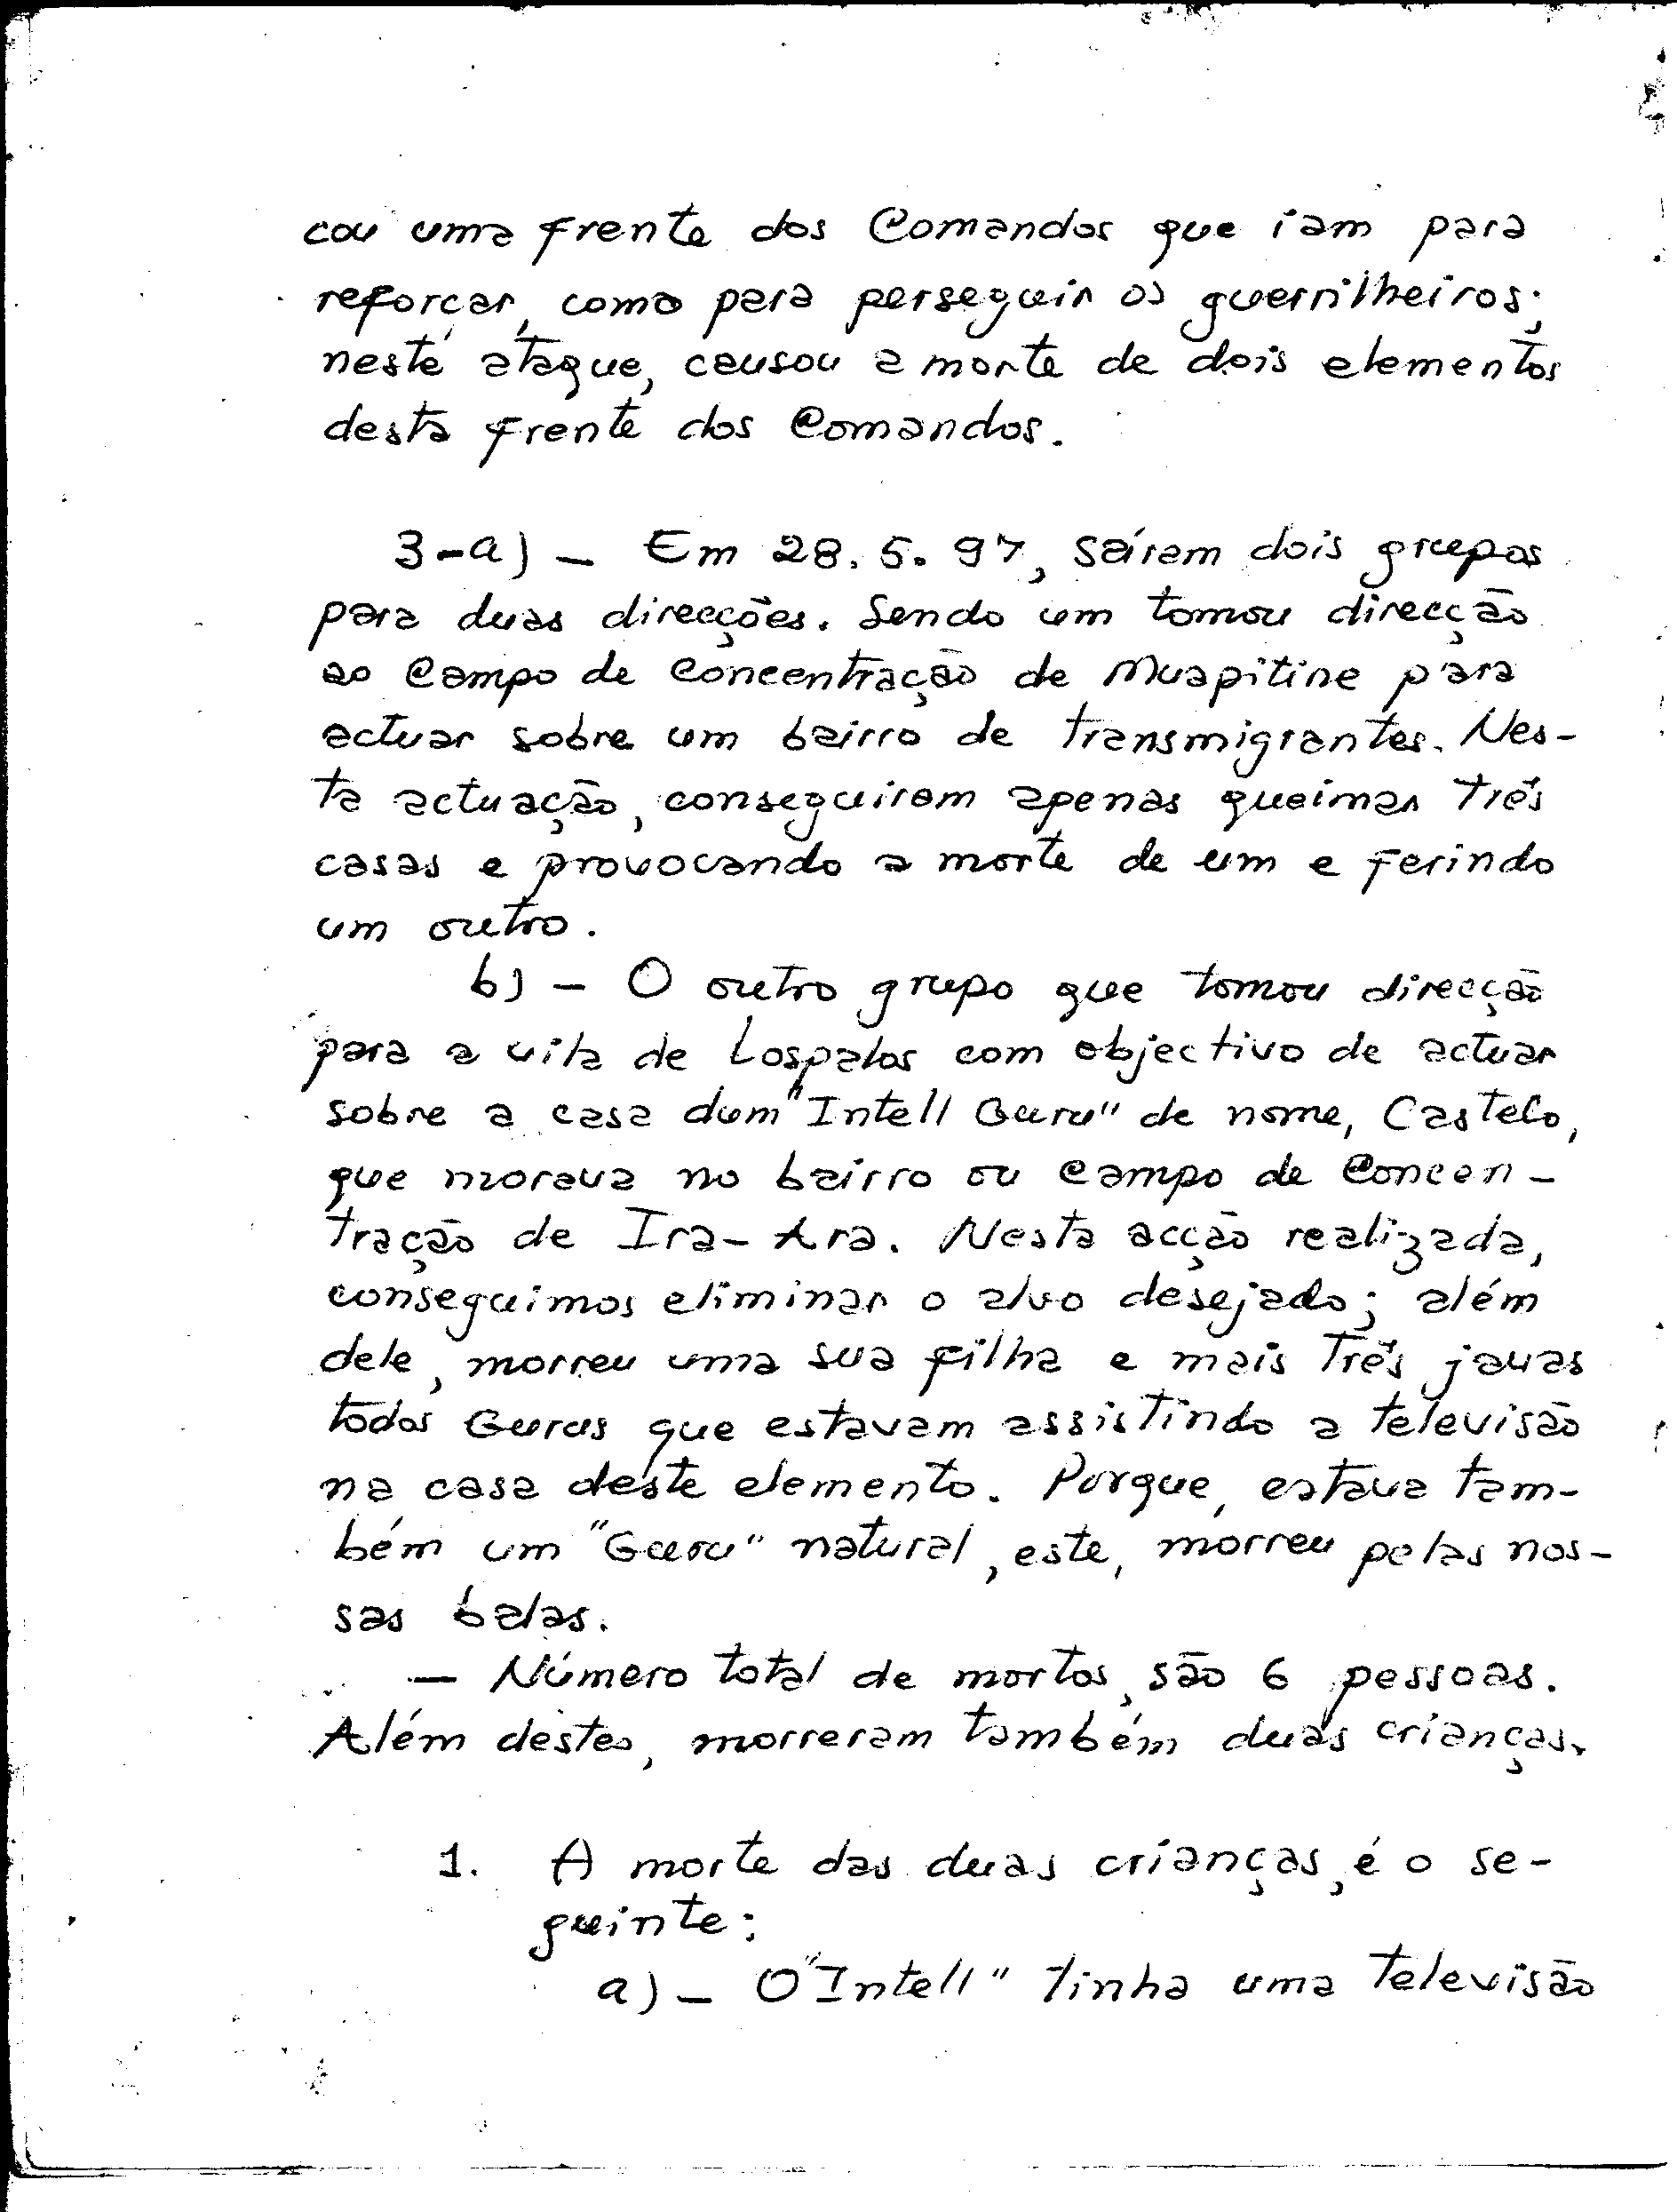 cou uma frente dos Comandos que iam para
reforçar, como para perseguir os guerrilheiros;
neste ataque, causou a morte de dois elementos
desta frente dos Comandos.
3-a) - Em 28.5.97, saíram dois grupos
para duas direcções. Sendo um tomou direcção
ao Campo de Concentração de Muapitine para
actuar sobre um bairro de transmigrantes. Nes-
ta actuação, conseguiram apenas queimar três
casas e provocando a morte de um e ferindo
um outro.
b) - O outro grupo que tomou direcção
para a vila de Lospalos com objectivo de actuar
sobre a casa dum "Intell Guru" de nome, Castelo,
que morava no bairro ou Campo de Concen-
tração de Ira-Ara. Nesta acção realizada,
conseguimos eliminar o alvo desejado; além
dele, morreu uma sua filha e mais três javas
todos Gurus que estavam assistindo a televisão
na casa deste elemento. Porque, estava tam-
bém um "Guru" natural, este, morreu pelas nos-
sas balas.
- Número total de mortos, são 6 pessoas.
Além destes, morreram também duas crianças.
1. A morte das duas crianças, é o se-
guinte:
a) - O "Intell" tinha uma televisão